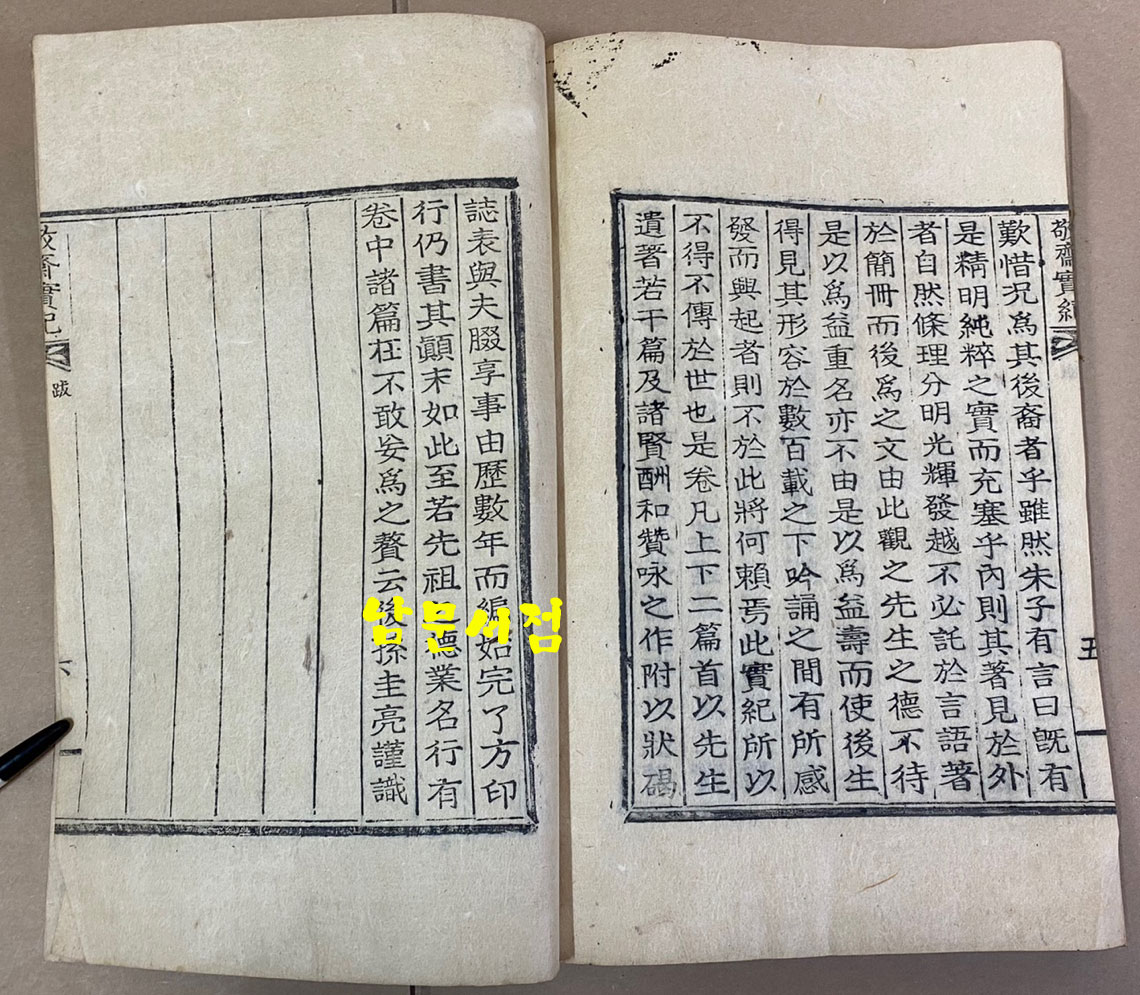 敬齋實紀
五
歎惜况爲其後裔者乎雖然朱子有言曰旣有
是精明純粹之實而充塞乎內則其著見於外
者自然條理分明光輝發越不必託於言語著
於簡冊而後爲之文由此觀之先生之德不待
是以爲益重名亦不由是以爲益壽而使後生
得見其形容於數百載之下吟誦之間有所感
發而興起者則不於此將何賴焉此實紀所以
不得不傳於世也是卷凡上下二篇首以先生
遺著若干篇及諸賢酬和贊咏之作附以狀碣
誌表與夫腏享事由歷數年而編始完了方印
行仍書其顚末如此至若先祖德業名行有
卷中諸篇在不敢妄爲之贅云後孫圭亮謹識
跋
남문서점